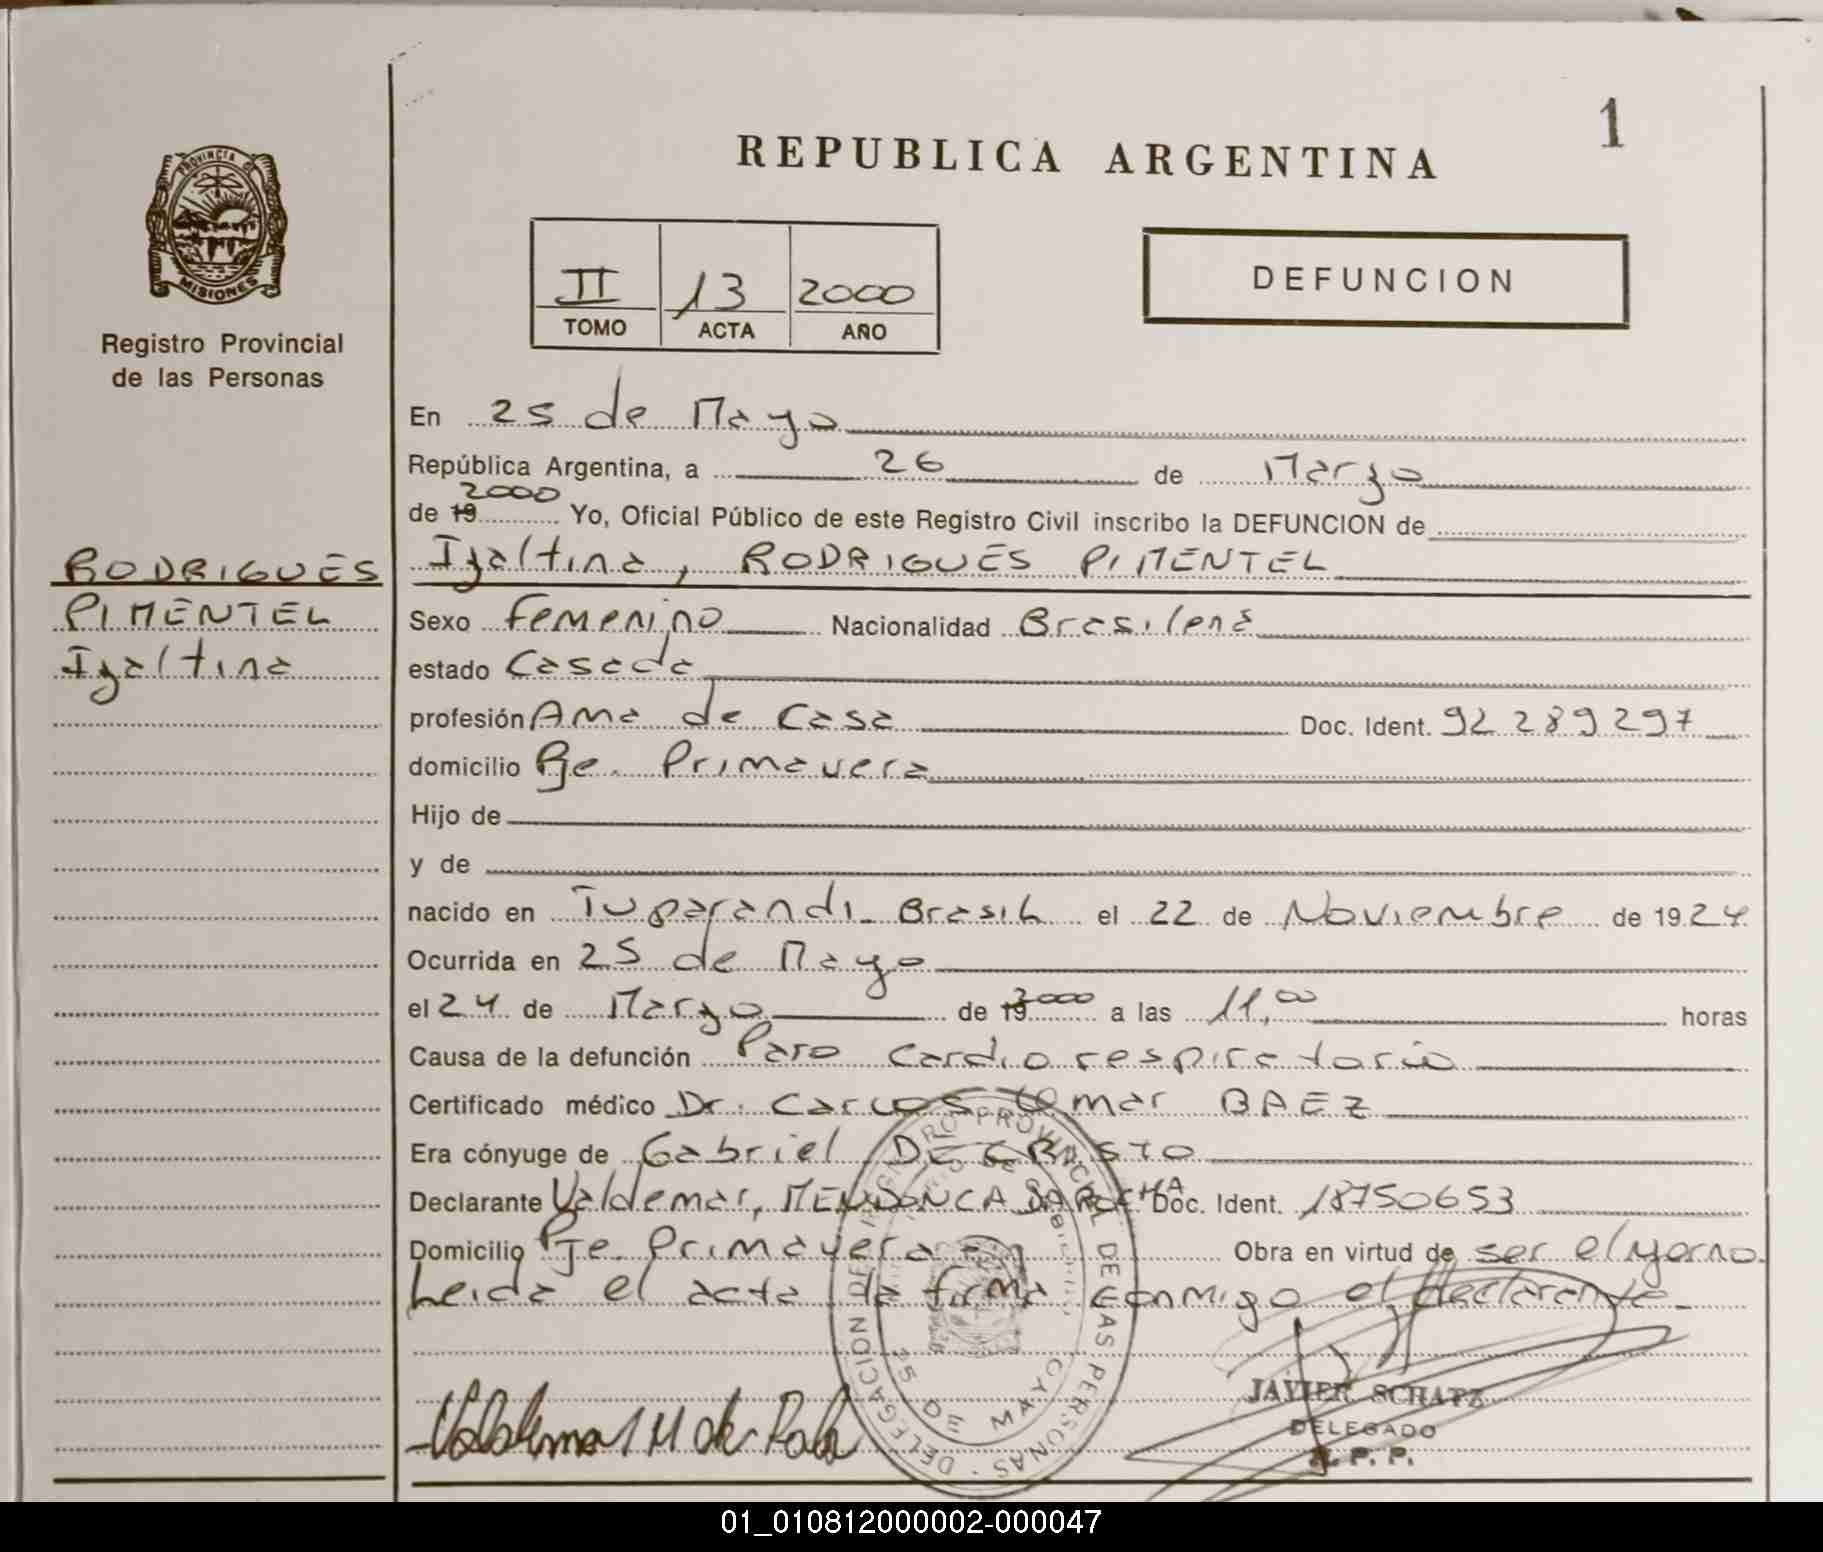 1
REPUBLICA ARGENTINA
PROVINCIA DE
MISIONES
Registro Provincial
de las Personas
II 13 2000
TOMO ACTA AÑO
DEFUNCION
En 25 de Mayo
República Argentina, a 26 de Marzo
de 19 2000 Yo, Oficial Público de este Registro Civil inscribo la DEFUNCION de
Izaltina, RODRIGUES PIMENTEL
RODRIGUES
PIMENTEL
Izaltina
Sexo Femenino Nacionalidad Brasilena
estado Casada
profesión Ama de Casa Doc. Ident. 92 289 297
domicilio Pje. Primavera
Hijo de
y de
nacido en Tuparandi_ Brasil el 22 de Noviembre de 1924
Ocurrida en 25 de Mayo
el 24 de Marzo de 19 2000 a las 11,00 horas
Causa de la defunción Paro Cardiorespiratorio
Certificado médico Dr. Carlos Omar BAEZ
Era cónyuge de Gabriel DE CRASTO
Declarante Valdemar, MENDONCA DA ROCHA Doc. Ident. 18750653
Domicilio Pje. Primavera Obra en virtud de ser el yerno.
Leida el acta la firma conmigo el declarante_
REGISTRO PROVINCIAL DE LAS PERSONAS · DELEGACION
25 DE MAYO
Valdemar M da Roha
JAVIER SCHATZ
DELEGADO
R. P. P.
01_010812000002-000047